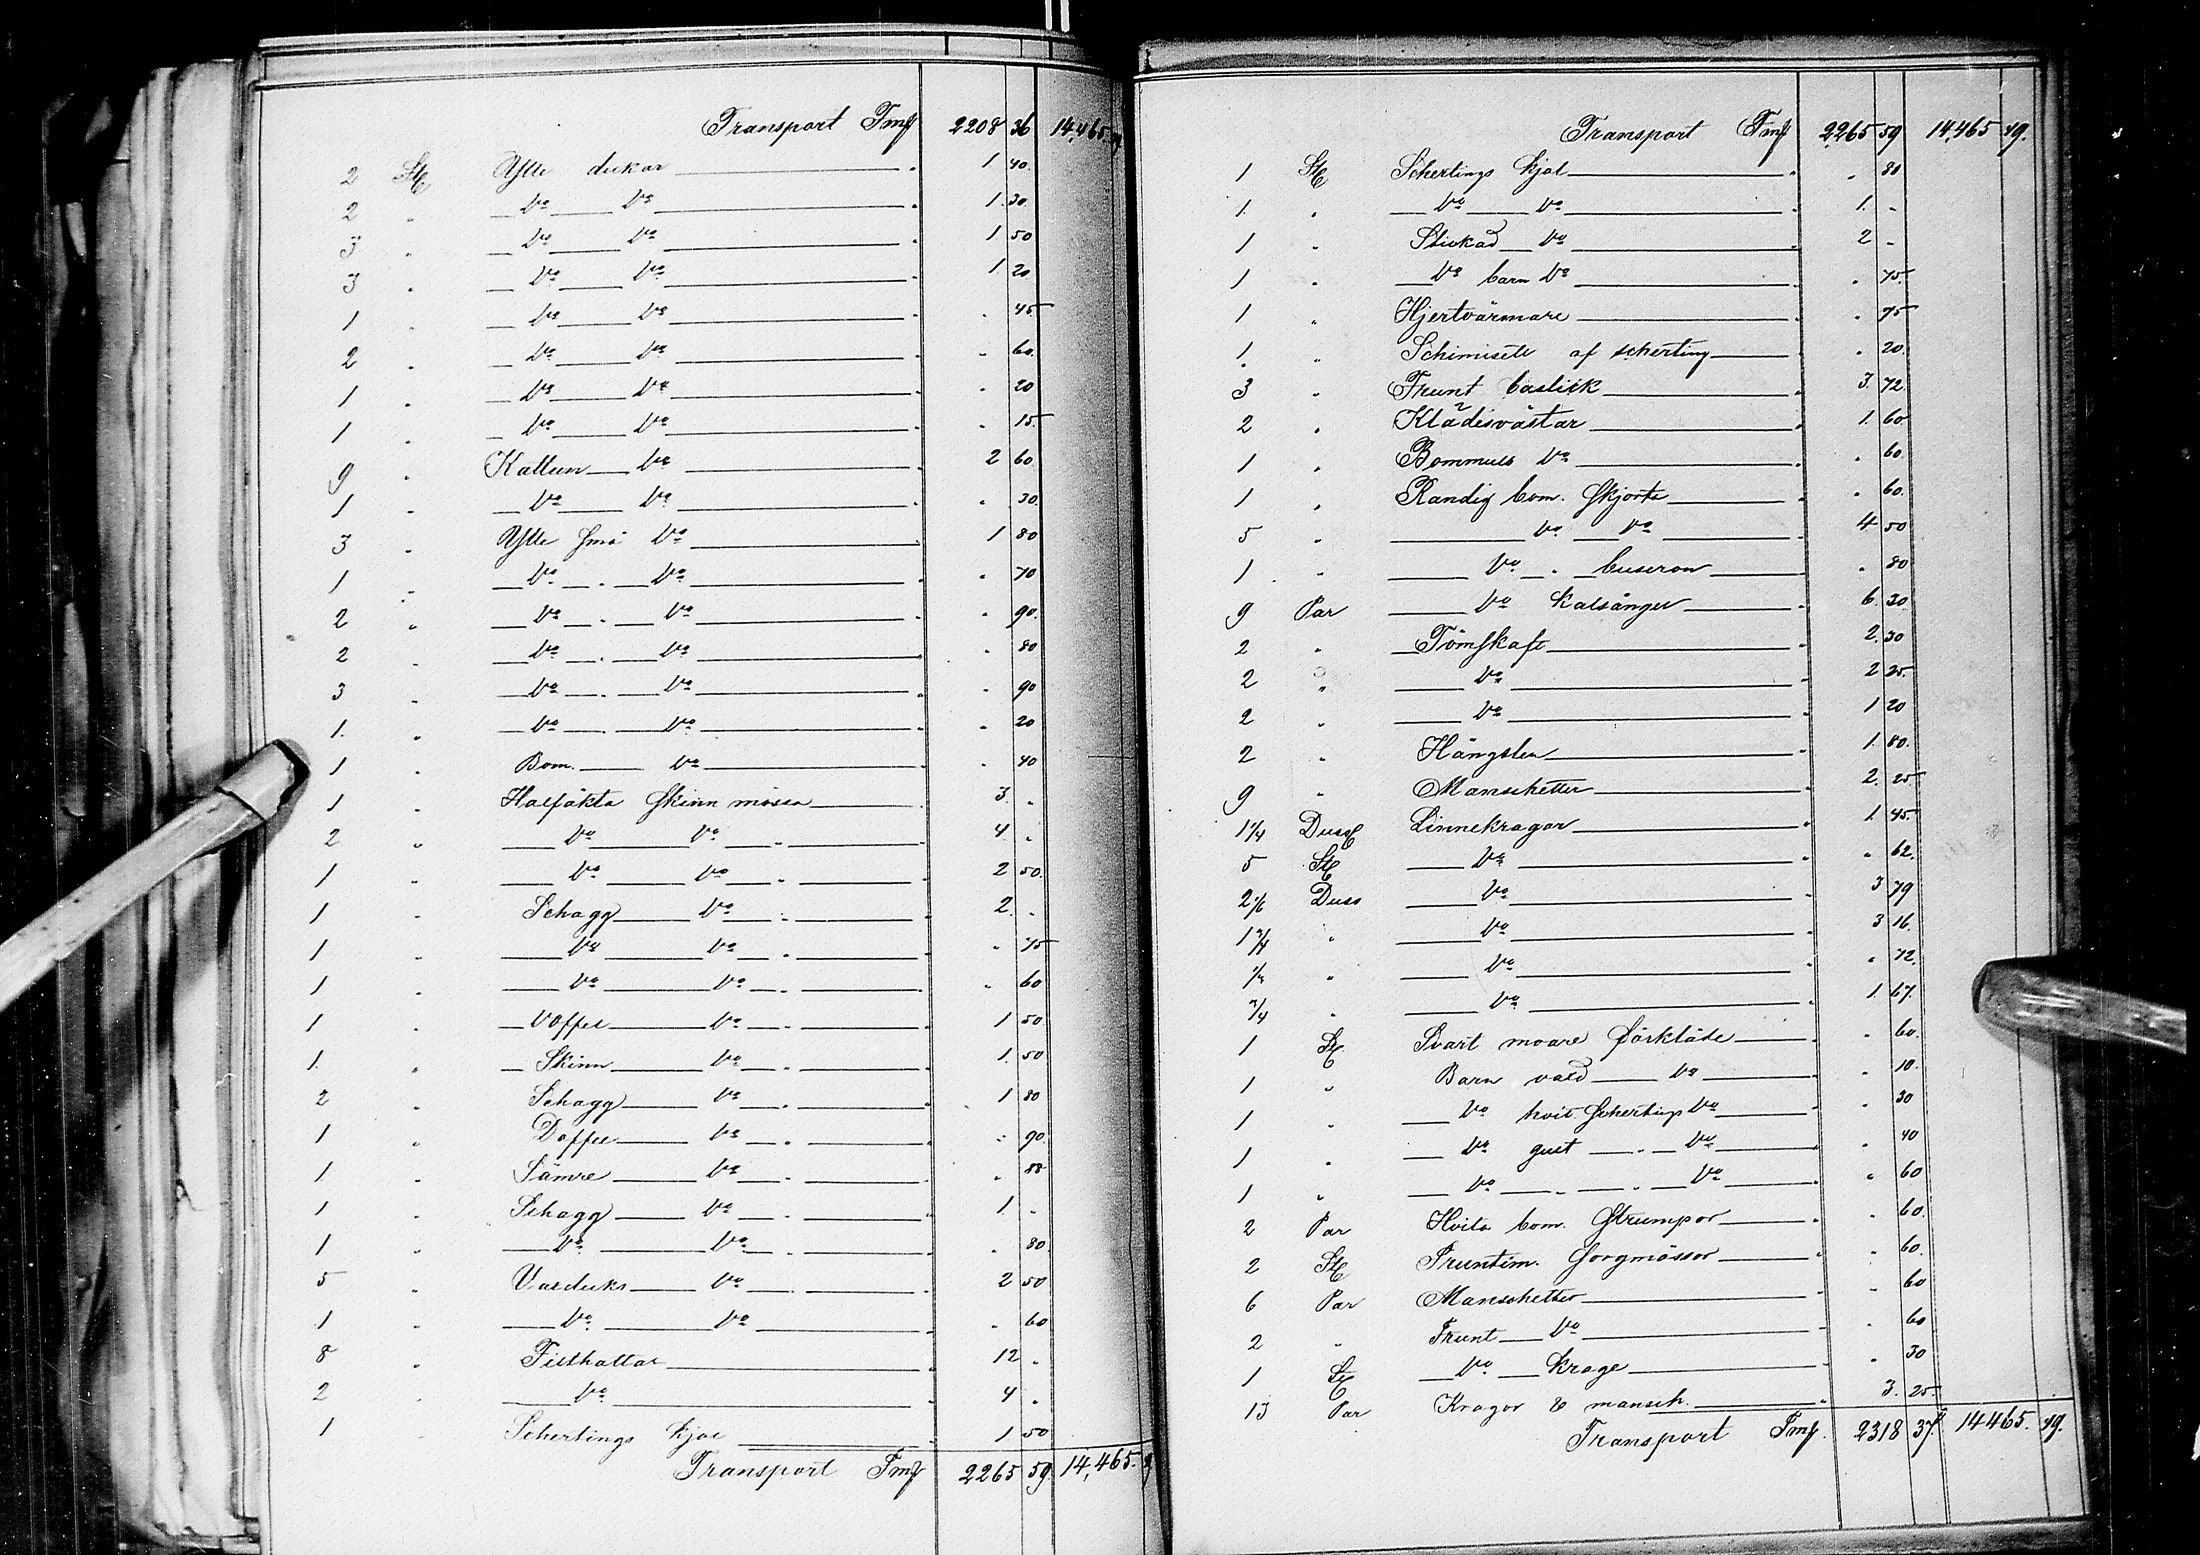 Transport Fmk 2208 36 14,465
2 St Ylle dukar 1. 40.
2 " Do Do 1. 30.
3 " Do Do 1 50
3 " Do Do 1 20
1 " Do Do " 45
2 " Do Do " 60.
1 " Do Do " 20
1 " Do Do " 15
9 " Kattun Do 2 60
1 " Do Do " 30.
3 " Ylle små Do 1 80
1 " Do " Do " 70
2 " Do " Do " 90.
2 " Do " Do " 80
3 " Do " Do " 90
1. " Do " Do " 20
1 " Bom. Do " 40
1 " Halfäkta skinn mössa 3. "
2 " Do Do " 4 "
1 " Do Do " 2 50.
1 " Schagg Do " 2. "
1 " Do Do " " 75
1 " Do Do " " 60
1 " Doffel Do " 1 50
1. " Skinn Do " 1. 50
2 " Schagg Do " 1 80
1 " Doffel Do " " 90.
1 " Sämre Do " " 88
1 " Schagg Do " 1 "
1 " Do Do " " 80.
5 " Vaxduks Do " 2 50
1 " Do Do " 60
8 " Filthattar 12 "
2 " Do 4 "
1 Schertings kjol 1 50
Transport Fmk 2265 59. 14,465.
Transport Fmk 2265 59 14,465 49.
1 St Schertings kjol " 80
1. " Do Do 1. "
1 " Stickad Do 2 "
1 " Do barn Do " 75.
1 " Hjertvärmare " 75
1. " Schimisett af scherting " 20.
3 " Frunt baslick 3. 72.
2 " Klädisvästar 1. 60.
1 " Bommuls Do " 60
1 " Randig bom. skjorta " 60.
5 " Do Do 4 50
1 " Do " buseron " 80
9 Par Do kalsånger 6. 30
2 " Tömskaft 2. 30
2 " Do 2 25.
2 " Do 1 20
2 " Hängslen 1. 80.
9 " Manschetter 2. 25
1 1/4 Duss Linnekragar 1. 45.
5 St Do " 62.
2 1/6 Duss Do 3 79
1 3/4 " Do 3 16.
" Do " 72.
3/4 " Do 1. 67.
1 St Svart moare förkläde " 60.
1 " Barn vaxd Do " 10.
1 " Do hvit schertings Do " 30
1 " Do gult " Do " 40
1 " Do " " Do " 60
2 Par Hvita bom. strumpor " 60.
2 St Fruntim. sorgmössor " 60.
6 Par Manschetter " 60
2 " Frunt Do " 60
1 St Do krage " 30
13 Par Kragor & mansch. 3. 25
Transport Fmk. 2318 37. 14465. 49.